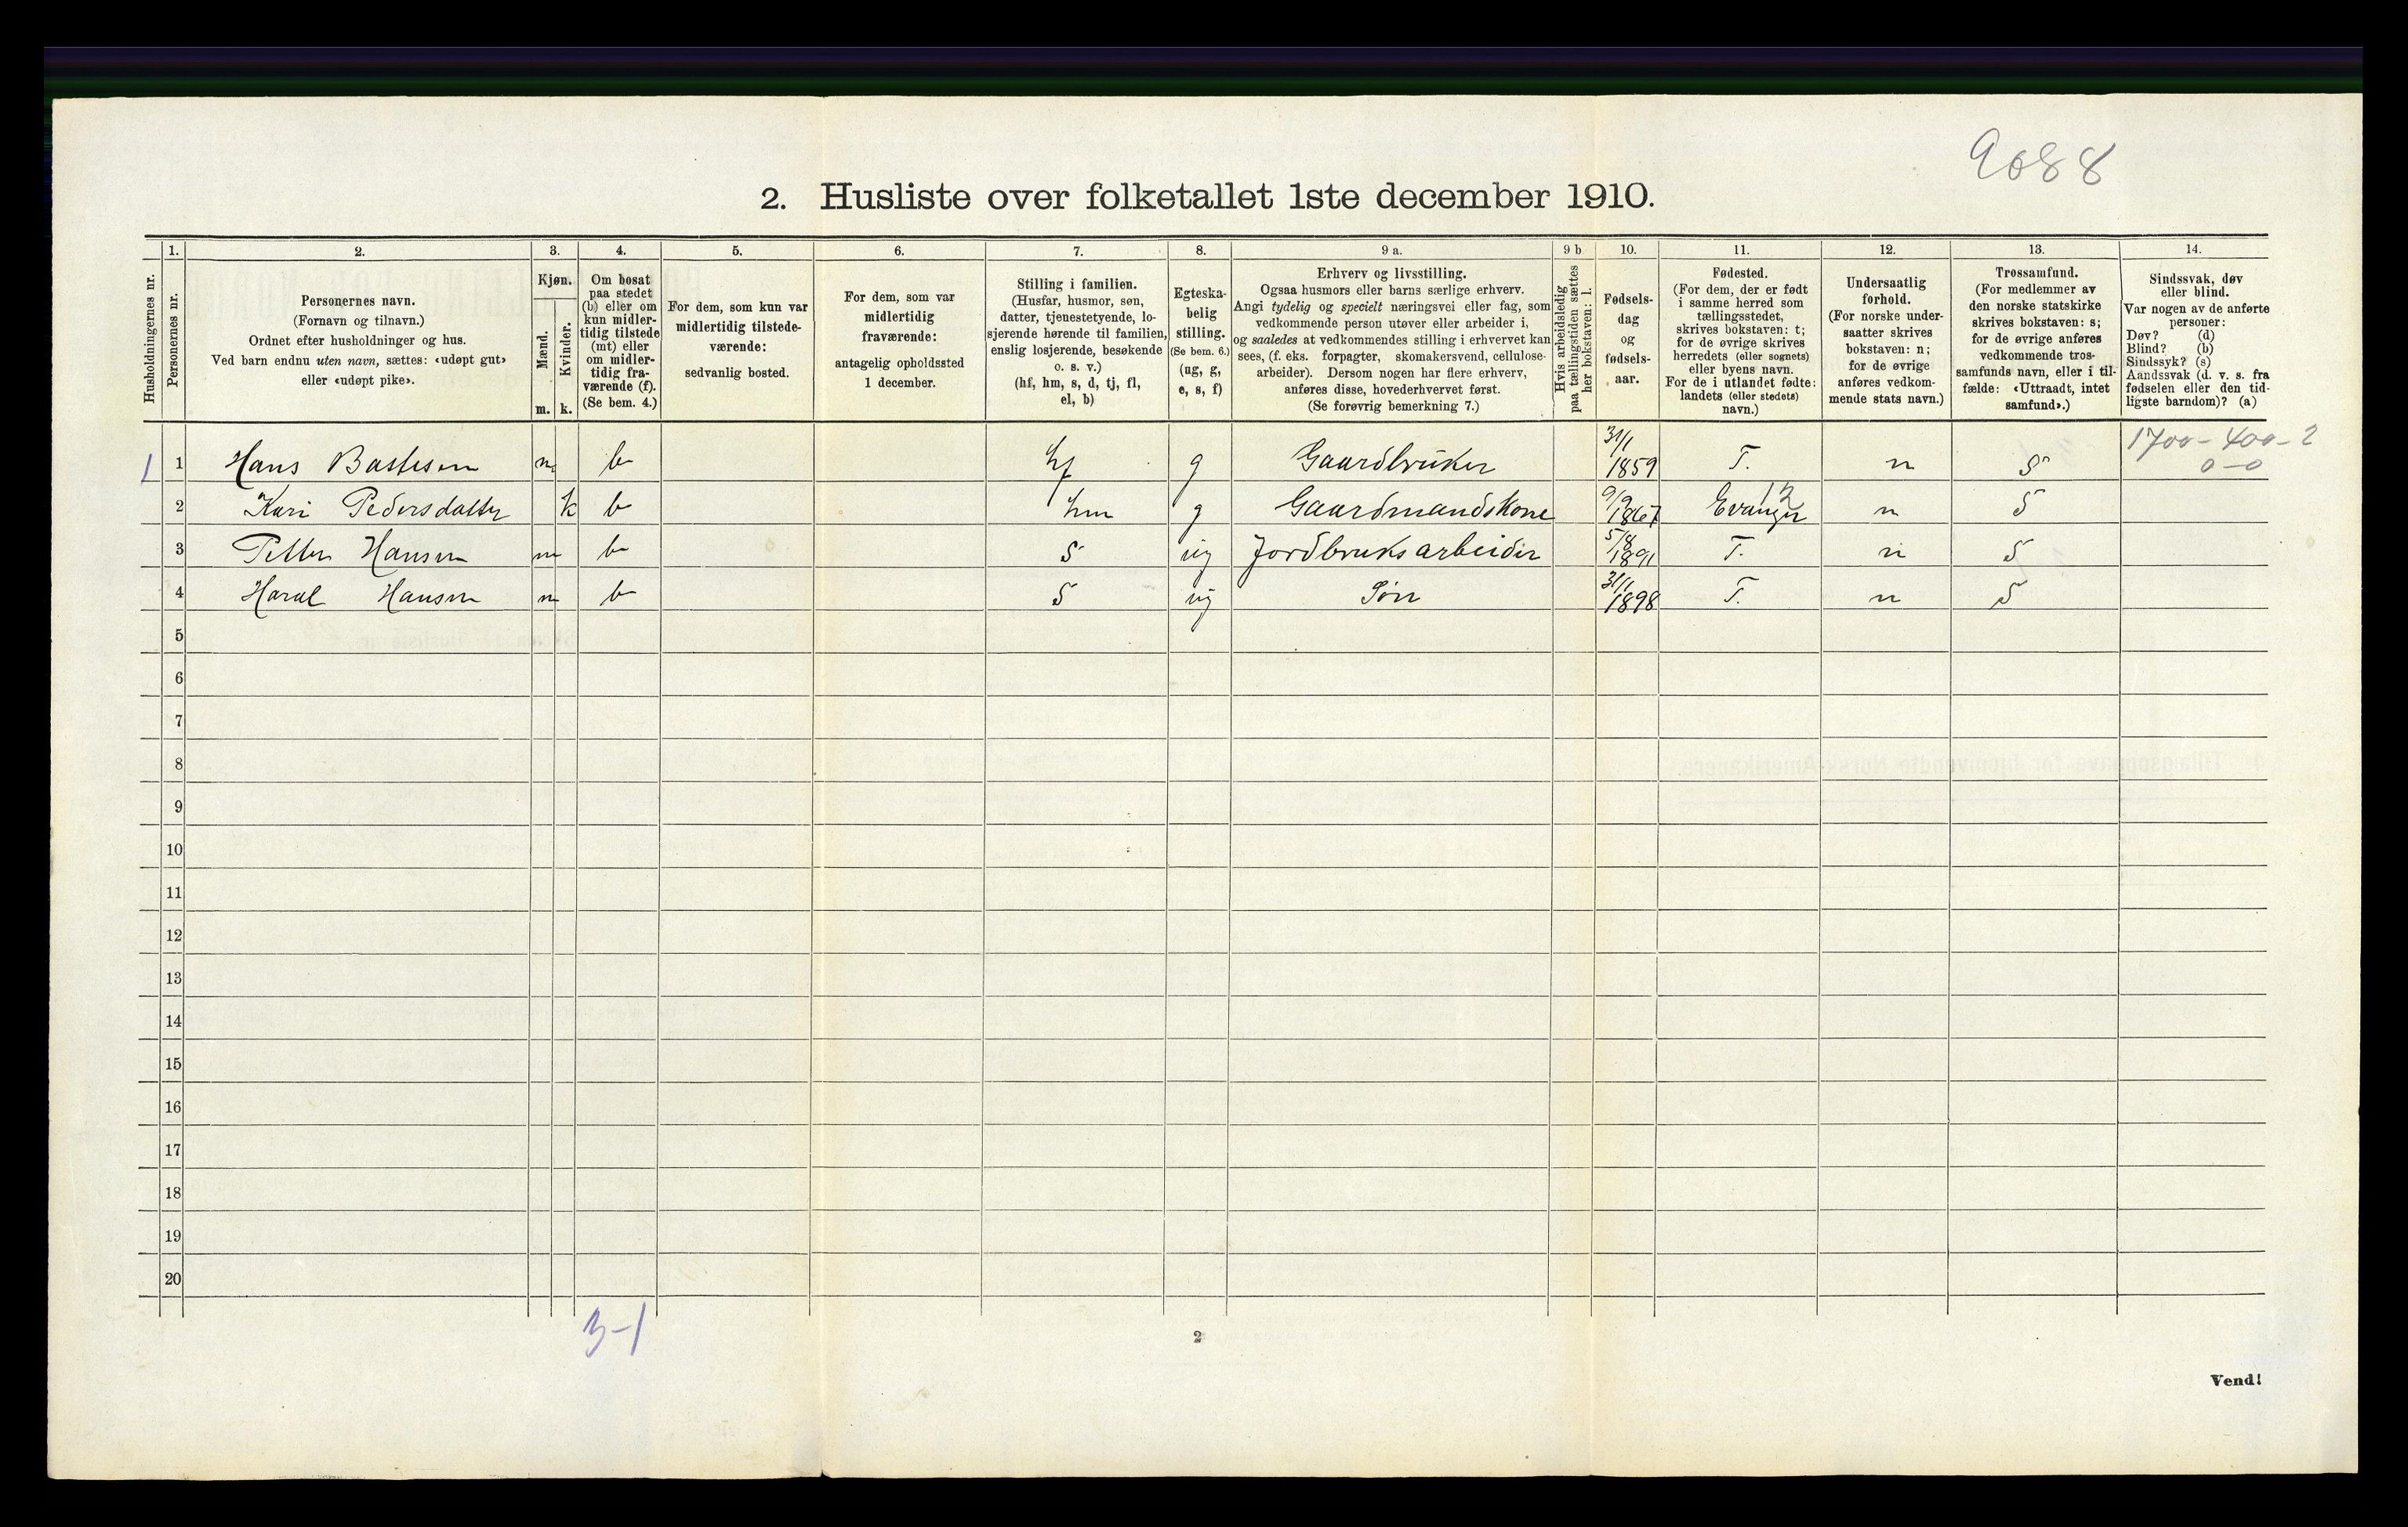 9088
2. Husliste over folketallet 1ste december 1910.
Husholdningernes nr.
1. Personernes nr.
2. Personernes navn.
(Fornavn og tilnavn.)
Ordnet efter husholdninger og hus.
Ved barn endnu uten navn, sættes: «udøpt gut»
eller «udøpt pike».
3. Kjøn.
Mænd. Kvinder.
m. k.
4. Om bosat
paa stedet
(b) eller om
kun midler-
tidig tilstede
(mt) eller
om midler-
tidig fra-
værende (f).
(Se bem. 4.)
5. For dem, som kun var
midlertidig tilstede-
værende:
sedvanlig bosted.
6. For dem, som var
midlertidig
fraværende:
antagelig opholdssted
1 december.
7. Stilling i familien.
(Husfar, husmor, søn,
datter, tjenestetyende, lo-
sjerende hørende til familien,
enslig losjerende, besøkende
o. s. v.)
(hf, hm, s, d, tj, fl,
el, b)
8. Egteska-
belig
stilling.
(Se bem. 6.)
(ug, g,
e, s, f)
9 a. Erhverv og livsstilling.
Ogsaa husmors eller barns særlige erhverv.
Angi tydelig og specielt næringsvei eller fag, som
vedkommende person utøver eller arbeider i,
og saaledes at vedkommendes stilling i erhvervet kan
sees, (f. eks. forpagter, skomakersvend, cellulose-
arbeider). Dersom nogen har flere erhverv,
anføres disse, hovederhvervet først.
(Se forøvrig bemerkning 7.)
9 b Hvis arbeidsledig
paa tællingstiden sættes
her bokstaven: l.
10. Fødsels-
dag
og
fødsels-
aar.
11. Fødested.
(For dem, der er født
i samme herred som
tællingsstedet,
skrives bokstaven: t;
for de øvrige skrives
herredets (eller sognets)
eller byens navn.
For de i utlandet fødte:
landets (eller stedets)
navn.)
12. Undersaatlig
forhold.
(For norske under-
saatter skrives
bokstaven: n;
for de øvrige
anføres vedkom-
mende stats navn.)
13. Trossamfund.
(For medlemmer av
den norske statskirke
skrives bokstaven: s;
for de øvrige anføres
vedkommende tros-
samfunds navn, eller i til-
fælde: «Uttraadt, intet
samfund».)
14. Sindssvak, døv
eller blind.
Var nogen av de anførte
personer:
Døv? (d)
Blind? (b)
Sindssyk? (s)
Aandssvak (d. v. s. fra
fødselen eller den tid-
ligste barndom)? (a)
1 1 Hans Bastesen m b hf g Gaardbruker 31/1 1859 T. n S 1700-400-2 0-0
2 Kari Pedersdatter k b hm g Gaardmandskone 9/9 1867 Evanger 12 n S
3 Petter Hansen m b S ug Jordbruksarbeider 5/8 1891 T. n S
4 Haral Hansen m b S ug Søn 31/1 1898 T. n S
5
6
7
8
9
10
11
12
13
14
15
16
17
18
19
20
3-1
2
Vend!